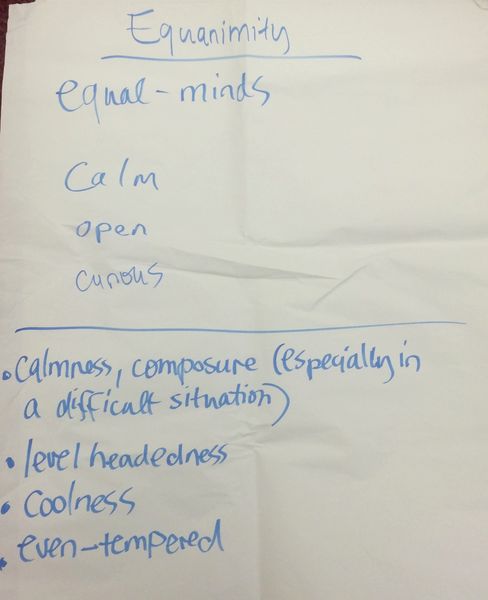 Equanimity
equal-minds
Calm
open
curious
• calmness, composure (especially in
a difficult situation)
• level headedness
• coolness
• even-tempered